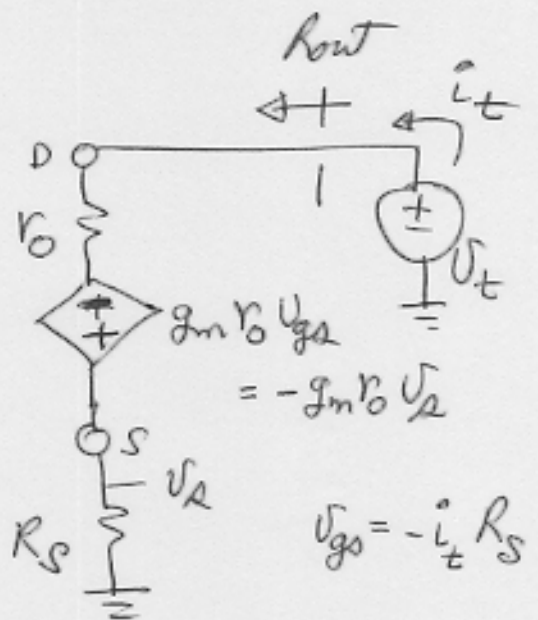 Rout
i_t
D
r_o
+
-
v_t
-
+
g_m r_o v_gs
= -g_m r_o v_s
S
v_s
R_S
v_gs = -i_t R_S